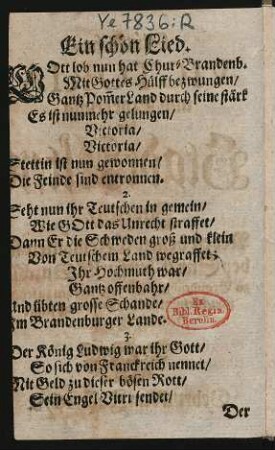 Ye 7836:R
Ein schön Lied.
GOtt lob nun hat Chur-Brandenb.
Mit Gottes Hülff bezwungen/
Gantz Pom̃erLand durch seine stärk
Es ist nunmehr gelungen/
Victoria/
Victoria/
Stettin ist nun gewonnen/
Die Feinde sind entronnen.
2.
Seht nun ihr Teutschen in gemein/
Wie GOtt das Unrecht straffet/
Dann Er die Schweden groß und klein
Von Teutschem Land wegraffet;
Ihr Hochmuth war/
Gantz offenbahr/
Und übten grosse Schande/
Im Brandenburger Lande.
Ex
Bibl. Regia
Berolin.
3.
Der König Ludwig war ihr Gott/
So sich von Franckreich nennet/
Mit Geld zu dieser bösen Rott/
Sein Engel Vitri sendet/
Der